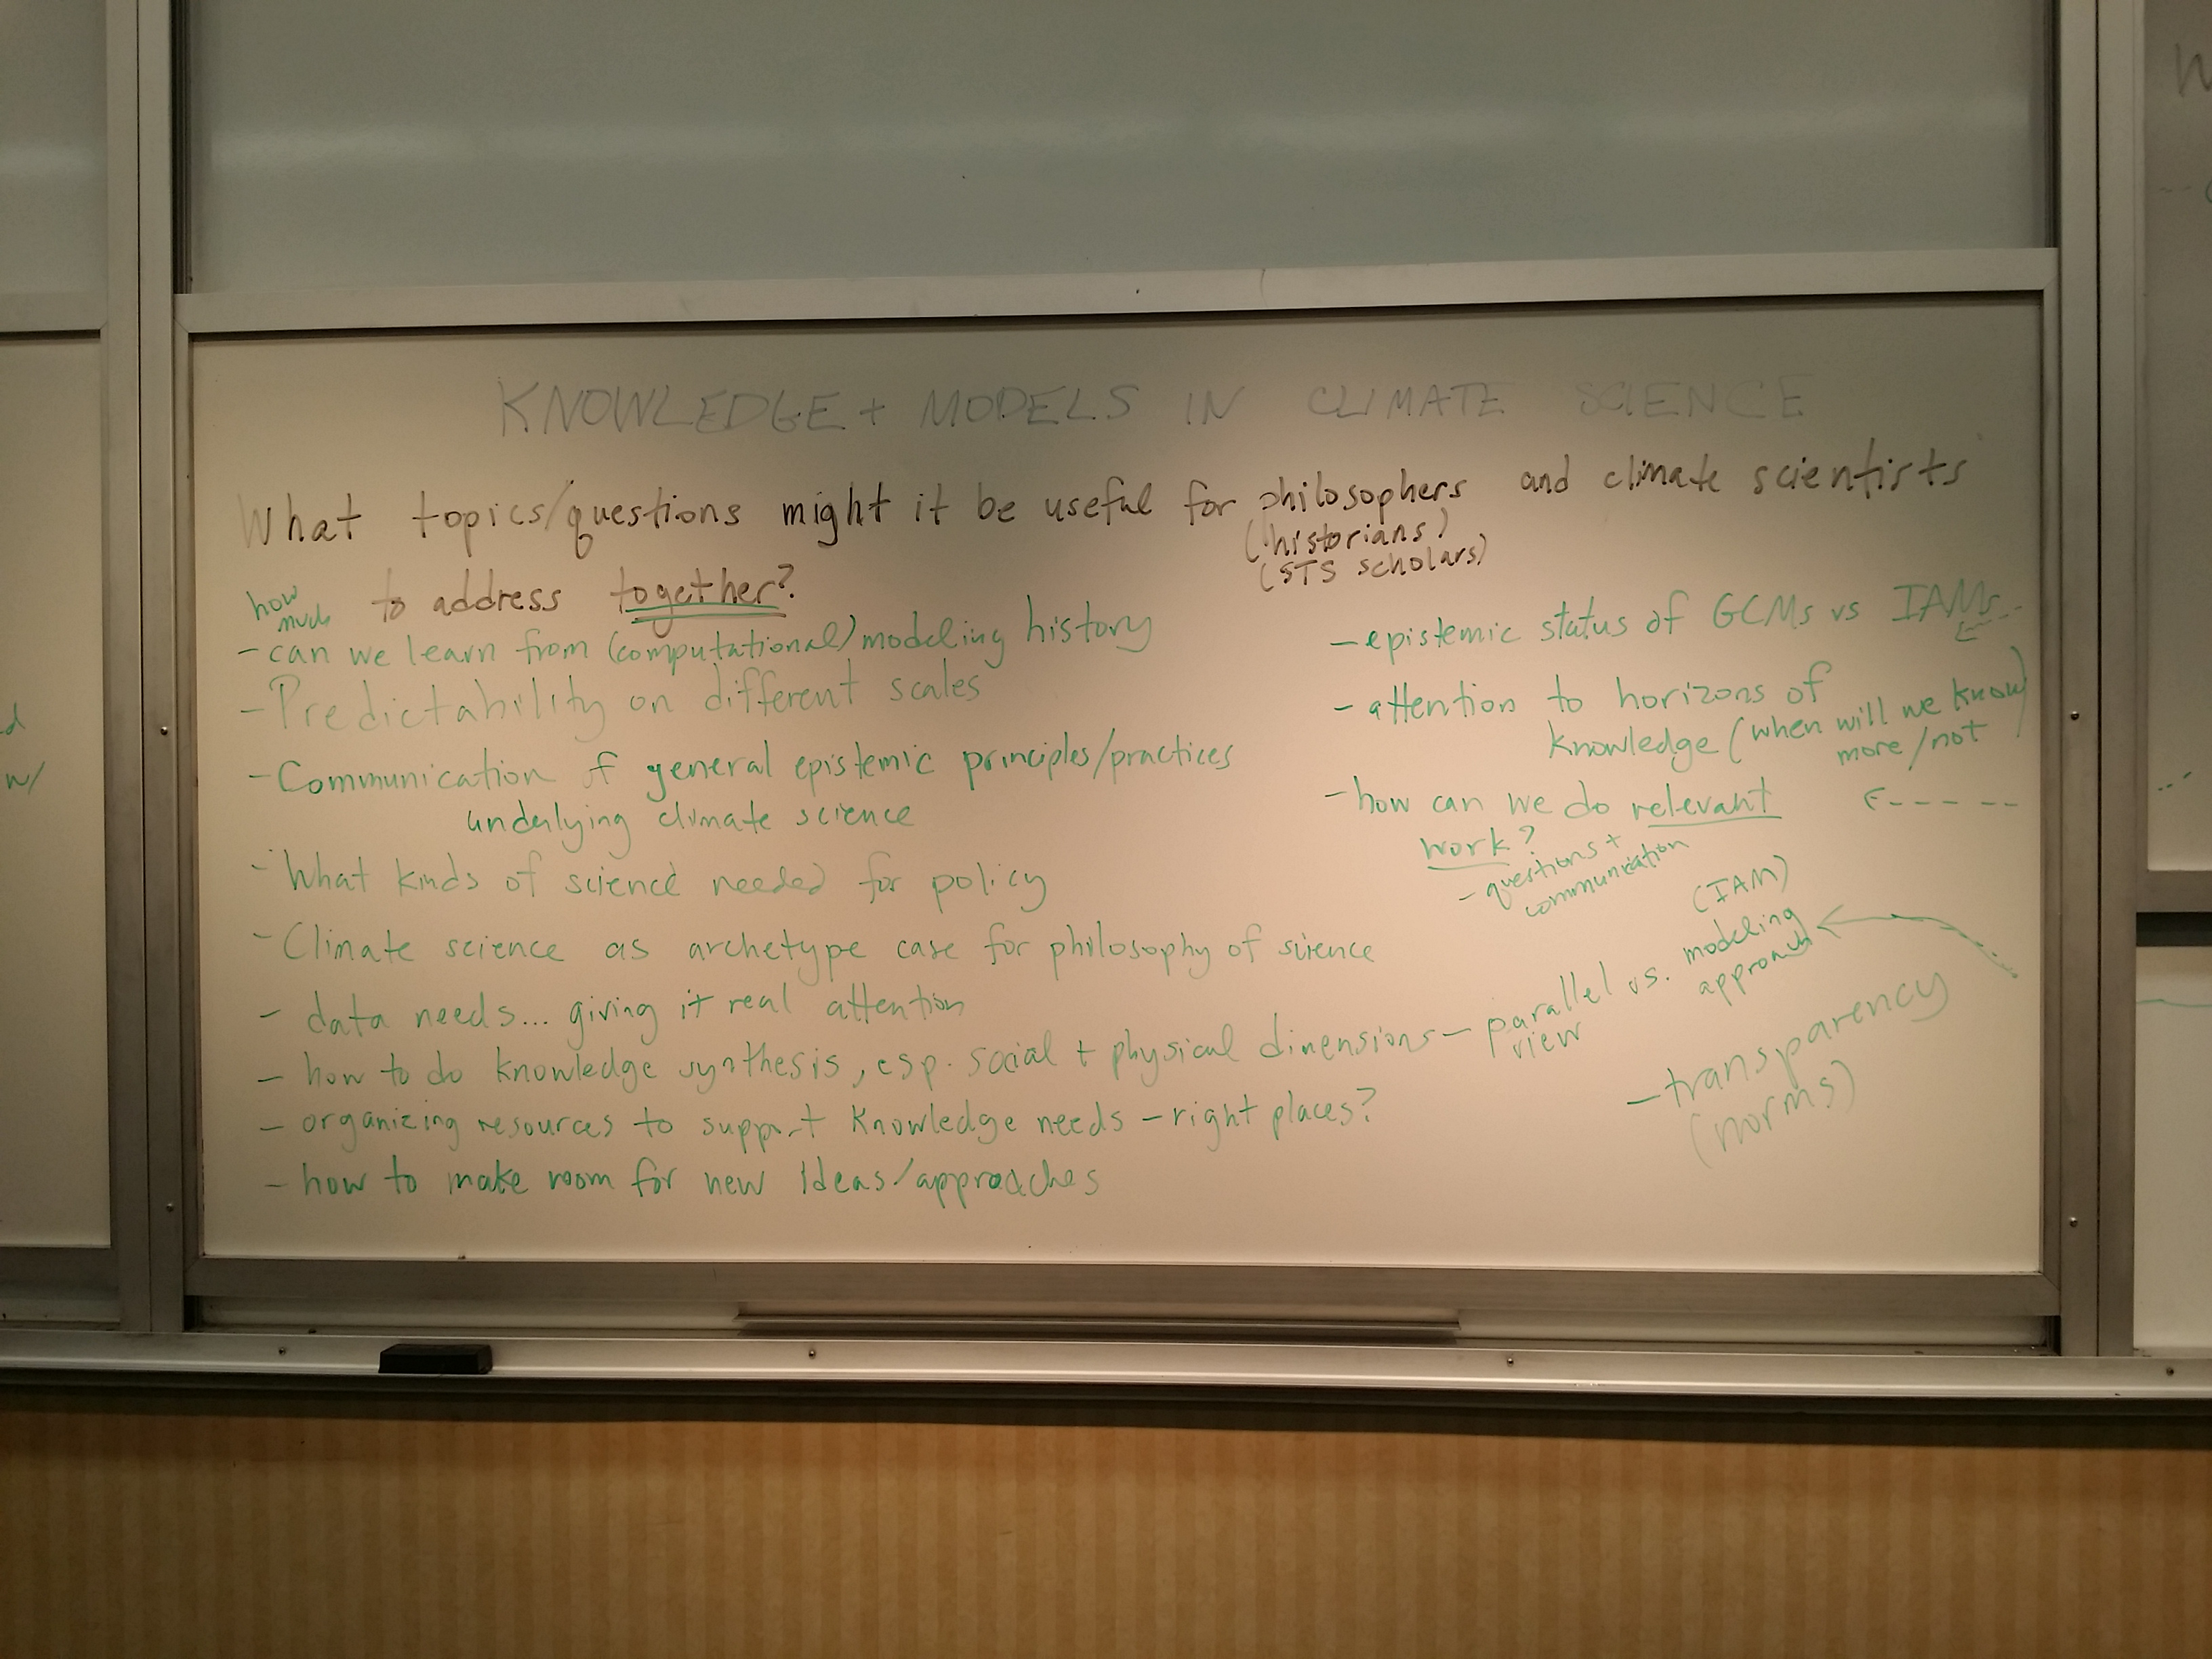 KNOWLEDGE + MODELS IN CLIMATE SCIENCE
What topics/questions might it be useful for philosophers and climate scientists
(historians)
(STS scholars)
to address together?
how
much
- can we learn from (computational) modeling history
- Predictability on different scales
- Communication of general epistemic principles/practices
underlying climate science
- What kinds of science needed for policy
- Climate science as archetype case for philosophy of science
- data needs... giving it real attention
- how to do knowledge synthesis, esp. social + physical dimensions - parallel vs. modeling
view
(IAM)
approach
- organizing resources to support knowledge needs - right places?
- how to make room for new ideas/approaches
- epistemic status of GCMs vs IAMs
- attention to horizons of
knowledge (when will we know)
more/not
- how can we do relevant
work?
- questions +
communication
- transparency
(norms)
d
w/